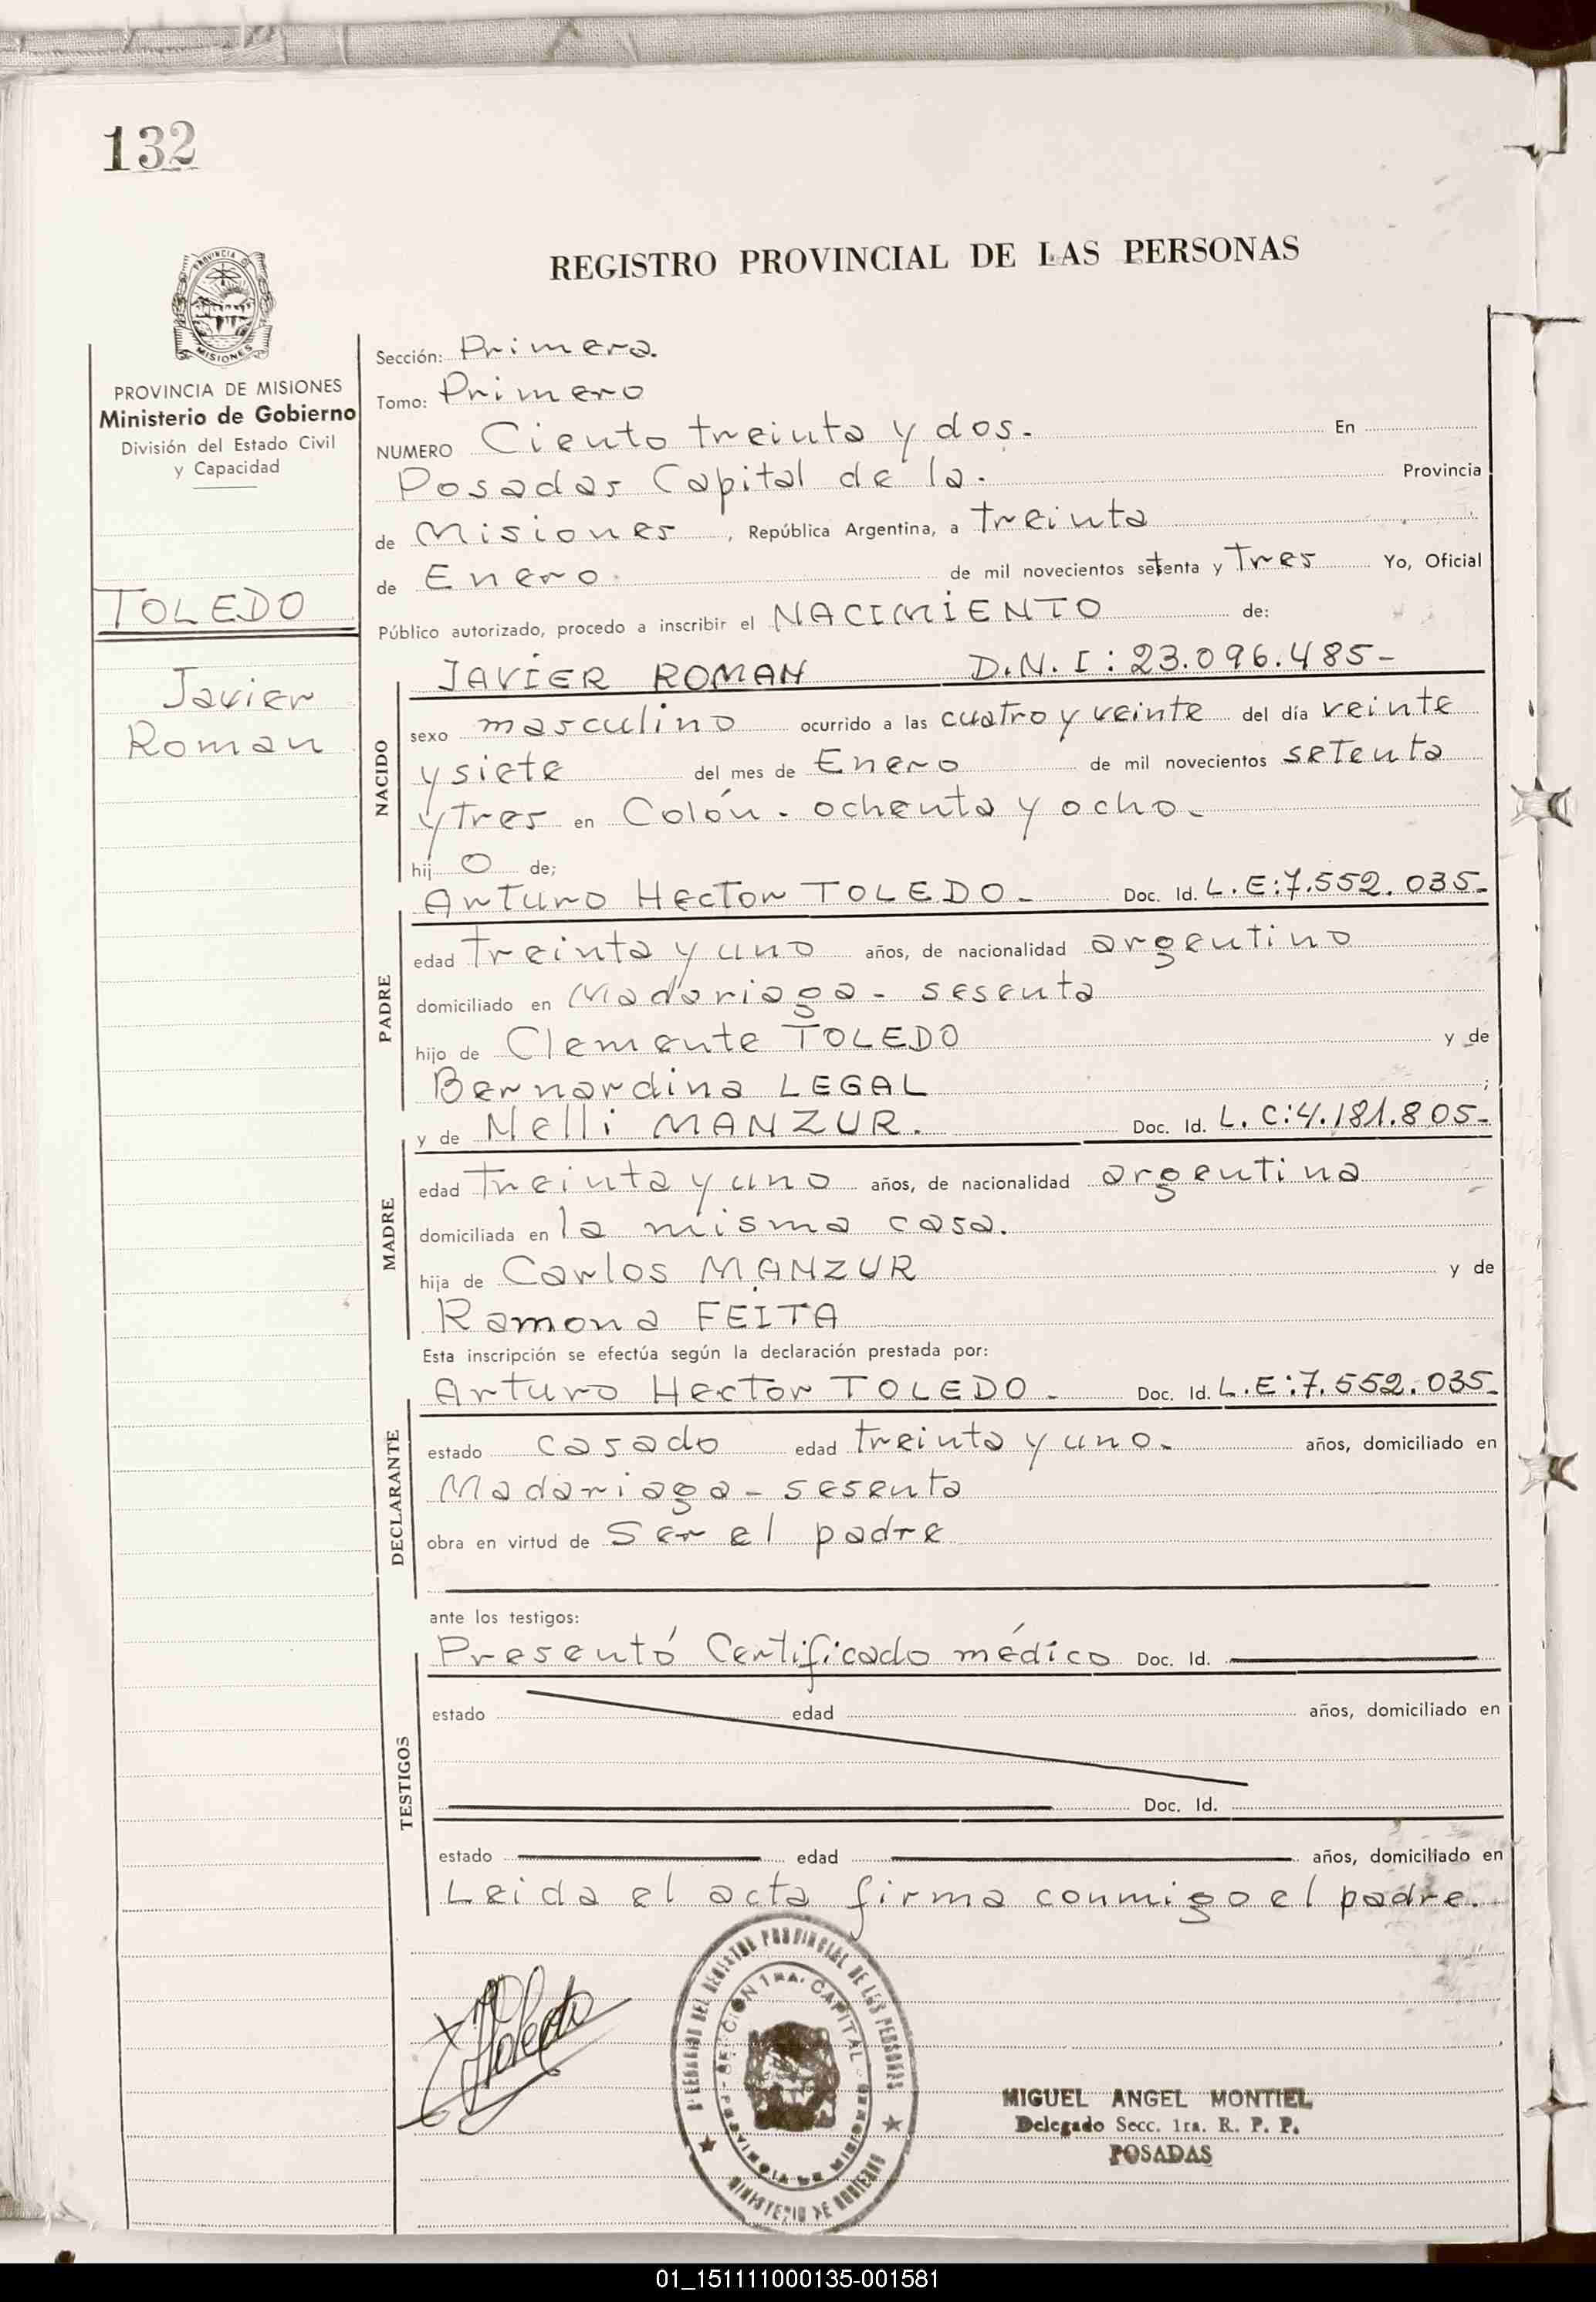 132
REGISTRO PROVINCIAL DE LAS PERSONAS
PROVINCIA DE MISIONES
PROVINCIA DE MISIONES
Ministerio de Gobierno
División del Estado Civil
y Capacidad
TOLEDO
Javier
Roman
Sección: Primera.
Tomo: Primero
NUMERO Ciento treinta y dos. En
Posadas Capital de la. Provincia
de Misiones, República Argentina, a treinta
de Enero. de mil novecientos setenta y Tres Yo, Oficial
Público autorizado, procedo a inscribir el NACIMIENTO de:
NACIDO
JAVIER ROMAN D.N.I: 23.096.485-
sexo masculino ocurrido a las cuatro y veinte del día veinte
y siete del mes de Enero de mil novecientos setenta
y Tres en Colón - ochenta y ocho.
hij o de;
PADRE
Arturo Hector TOLEDO - Doc. Id. L.E:7.552.035-
edad Treinta y uno años, de nacionalidad argentino
domiciliado en Madariaga - sesenta
hijo de Clemente TOLEDO y de
Bernardina LEGAL ;
MADRE
y de Nelli MANZUR. Doc. Id. L.C:4.181.805-
edad Treinta y uno años, de nacionalidad argentina
domiciliada en la misma casa.
hija de Carlos MANZUR y de
Ramona FEITA
Esta inscripción se efectúa según la declaración prestada por:
DECLARANTE
Arturo Hector TOLEDO - Doc. Id. L.E:7.552.035-
estado casado edad treinta y uno - años, domiciliado en
Madariaga - sesenta
obra en virtud de Ser el padre
ante los testigos:
TESTIGOS
Presentó Certificado médico Doc. Id.
estado edad años, domiciliado en
Doc. Id.
estado edad años, domiciliado en
Leida el acta firma conmigo el padre.
Toledo
DEL REGISTRO PROVINCIAL DE LAS PERSONAS
SECCION 1RA. CAPITAL
PROVINCIA DE MISIONES
MINISTERIO DE GOBIERNO
MIGUEL ANGEL MONTIEL
Delegado Secc. 1ra. R. P. P.
POSADAS
01_151111000135-001581